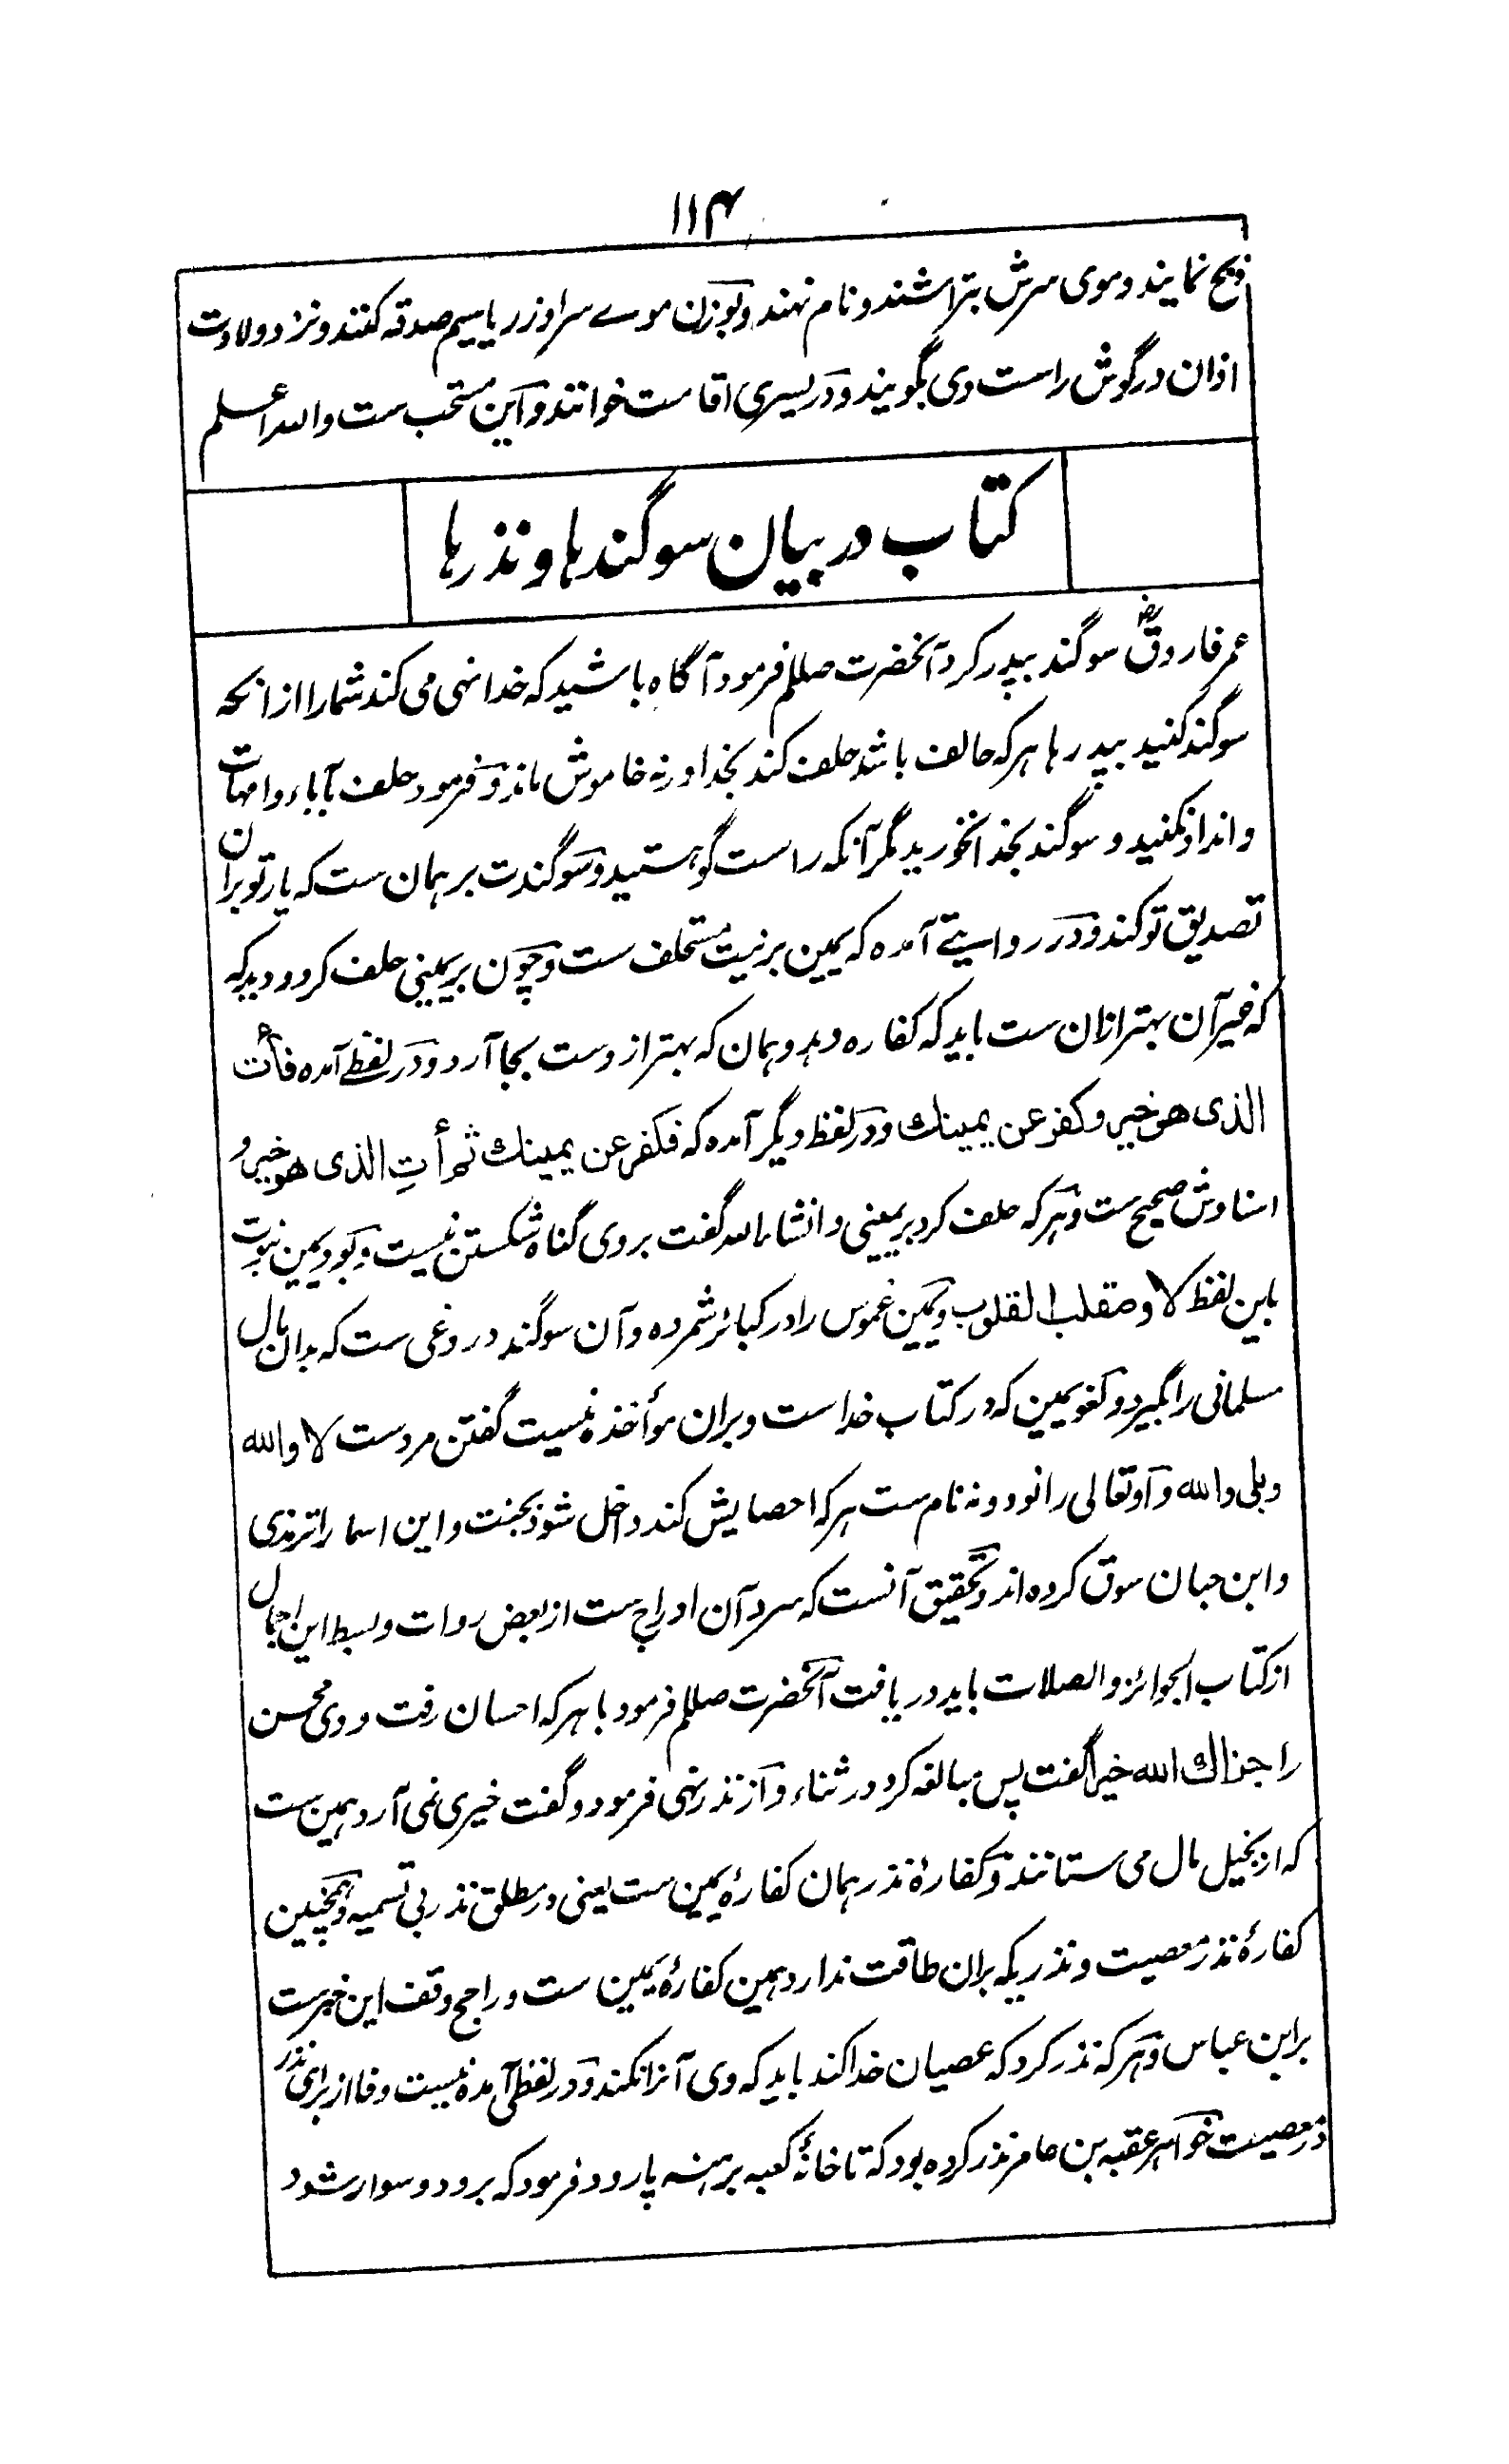 ۱۱۴
ذبح نمایند و موی سرش بتراشند و نام نهند و بوزن موے سر او زر یا سیم صدقه کنند و نزد ولادت
اذان در گوش راست وی بگویند و در یسری اقامت خوانند و این مستحب ست والله اعلم
کتاب در بیان سوگندها و نذرها
عمر فاروق رضـ سوگند بپدر کرد آنحضرت صللم فرمود آگاه باشید که خدا نهی می کند شما را از انکه
سوگند کنید بپدرها هر که حالف باشد حلف کند بخدا ورنه خاموش ماند و فرمود حلف بآباء و امهات
و انداد نکنید و سوگند بخدا نخورید مگر آنکه راست گو هستید و سوگندت بر همان ست که یار تو بران
تصدیق تو کند و در روایتے آمده که یمین بر نیت مستحلف ست و چون بر یمینی حلف کرد و دید که
که غیر آن بهتر ازان ست باید که کفاره دهد و همان که بهتر از وست بجا آرد و در لفظے آمده فأت
الذی هو خیر و کفر عن یمینك و در لفظ دیگر آمده که فکفر عن یمینك ثم أتِ الذی هو خیر و
اسنادش صحیح ست و هر که حلف کرد بر یمینی و انشاء الله گفت بر وی گناه شکستن نیست و بود یمین نبوت
باین لفظ لا و مقلب القلوب و یمین غموس را در کبائر شمرده و آن سوگند دروغی ست که بدان مال
مسلمانی را بگیرد و لغو یمین که در کتاب خداست و بران مؤاخذه نیست گفتن مردست لا والله
و بلی والله و او تعالی را نود و نه نام ست هر که احصایش کند داخل شود بجنت و این اسما را ترمذی
و ابن حبان سوق کرده اند و تحقیق آنست که سرد آن ادراج ست از بعض روات و بسط این اجمال
از کتاب الجوائز والصلات باید دریافت آنحضرت صللم فرمود با هر که احسان رفت و وی محسن
را جزاك الله خیرا گفت پس مبالغه کرد در ثناء و از نذر نهی فرمود و گفت خیری نمی آرد همین ست
که از بخیل مال می ستانند و کفارهٔ نذر همان کفارهٔ یمین ست یعنی در مطلق نذر بی تسمیه و همچنین
کفارهٔ نذر معصیت و نذریکه بران طاقت ندارد همین کفارهٔ یمین ست و راجح وقف این خبرست
بر ابن عباس و هر که نذر کرد که عصیان خدا کند باید که وی آنرا نکند و در لفظی آمده نیست وفا از برای نذر
در معصیت خواهر عقبه بن عامر نذر کرده بود که تا خانهٔ کعبه برهنه پا رود فرمود که برود و سوار شود